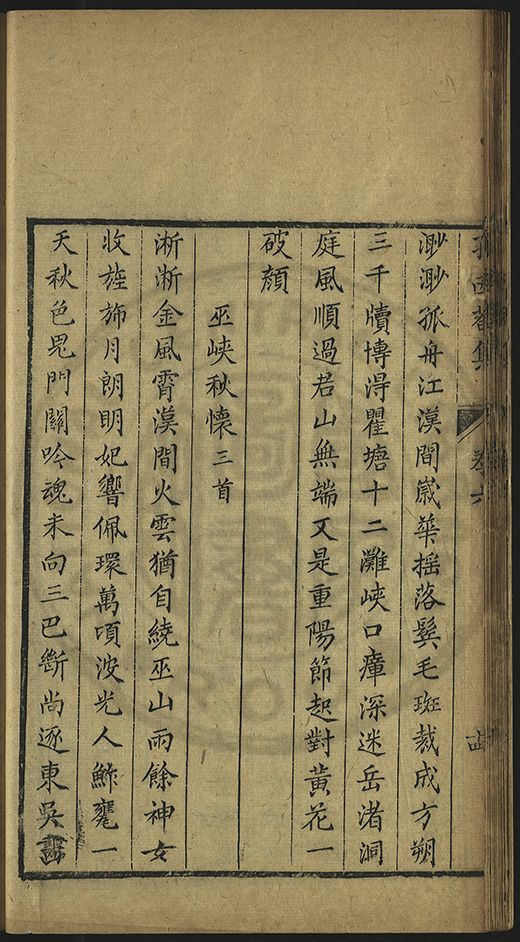 集 卷六
渺渺孤舟江漢間歲華揺落鬂毛斑裁成方朔
三千牘博淂瞿塘十二灘峽口瘴深迷岳渚洞
庭風順過君山無端又是重陽節起對黃花一
破顔
巫峽秋懷三首
淅淅金風霄漢間火雲猶自繞巫山雨餘神女
收旌斾月朗明妃響佩環萬頃波光人鮓甕一
天秋色鬼門關吟魂未向三巴斷尚逐東吳